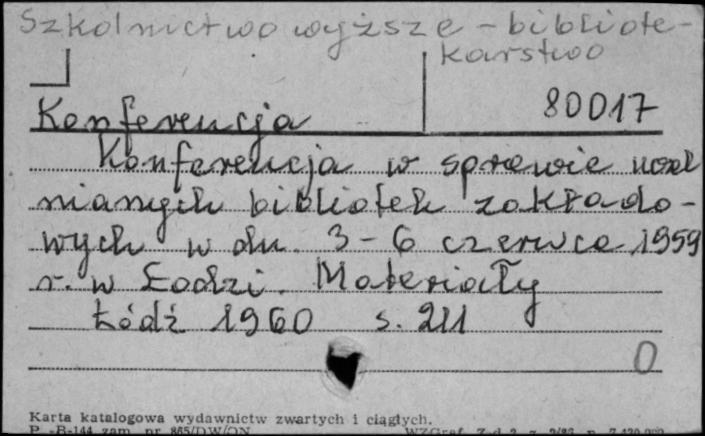 Szkolnictwo wyższe - bibliote-
karstwo
80017
Konferencja
Konferencja w sprawie uczel
nianych bibliotek zakłado-
wych w dn. 3-6 czerwca 1959
r. w Łodzi. Materiały
Łódź 1960 s. 211
0
Karta katalogowa wydawnictw zwartych i ciągłych.
P. -B-144 zam. nr 865/DW/ON